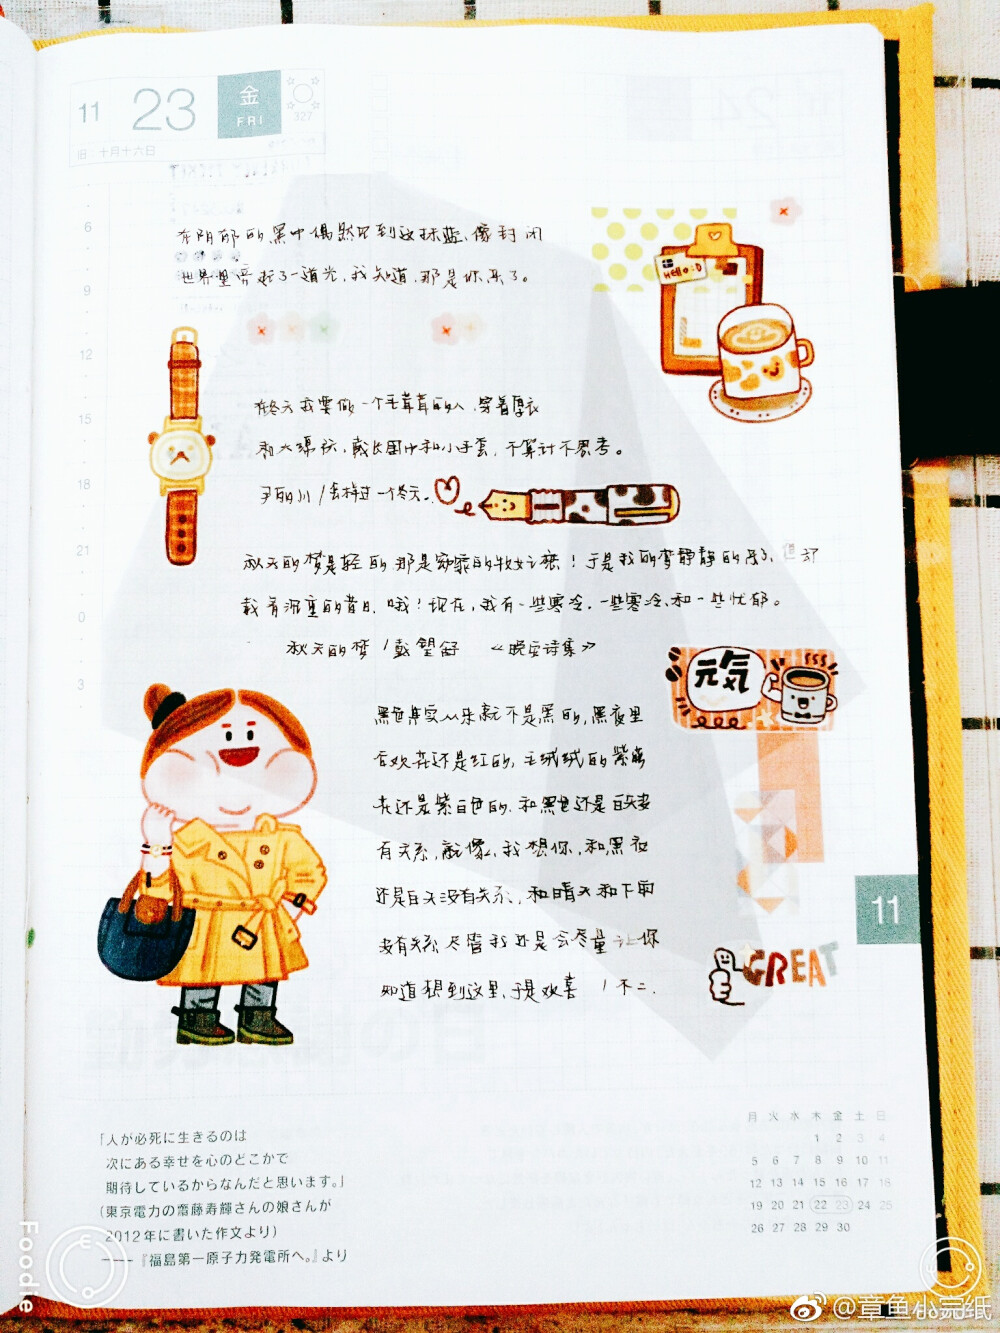 11 23 金 FRI
327
旧: 十月十六日
在阴郁的黑中偶然见到这抹蓝、像封闭
世界里亮起了一道光,我知道,那是你来了。
Hello:D
在冬天我要做一个毛茸茸的人,穿着厚衣
和大绵袄,戴长围巾和小手套,不算计不思考。
尹丽川/去掉过一个冬天。
秋天的梦是轻的,那是窈窕的牧女之恋!于是我的梦静静的来了、但却
载着沉重的昔日、哦!现在,我有一些寒冷,一些寒冷、和一些忧郁。
秋天的梦 / 戴望舒 《晚安诗集》
元気
黑色其实从来就不是黑的,黑夜里
合欢花还是红的,毛绒绒的紫薇
花还是紫白色的、和黑色还是白天没
有关系,就像,我想你,和黑夜
还是白天没有关系、和晴天和下雨
没有关系 尽管我还是会尽量让你
知道 想到这里、于是欢喜 / 不二.
GREAT
6
9
12
15
18
21
0
3
11
「人が必死に生きるのは
次にある幸せを心のどこかで
期待しているからなんだと思います。」
(東京電力の齋藤寿輝さんの娘さんが
2012年に書いた作文より)
——『福島第一原子力発電所へ。』より
月 火 水 木 金 土 日
1 2 3 4
5 6 7 8 9 10 11
12 13 14 15 16 17 18
19 20 21 22 23 24 25
26 27 28 29 30
Foodie
@章鱼小完纸